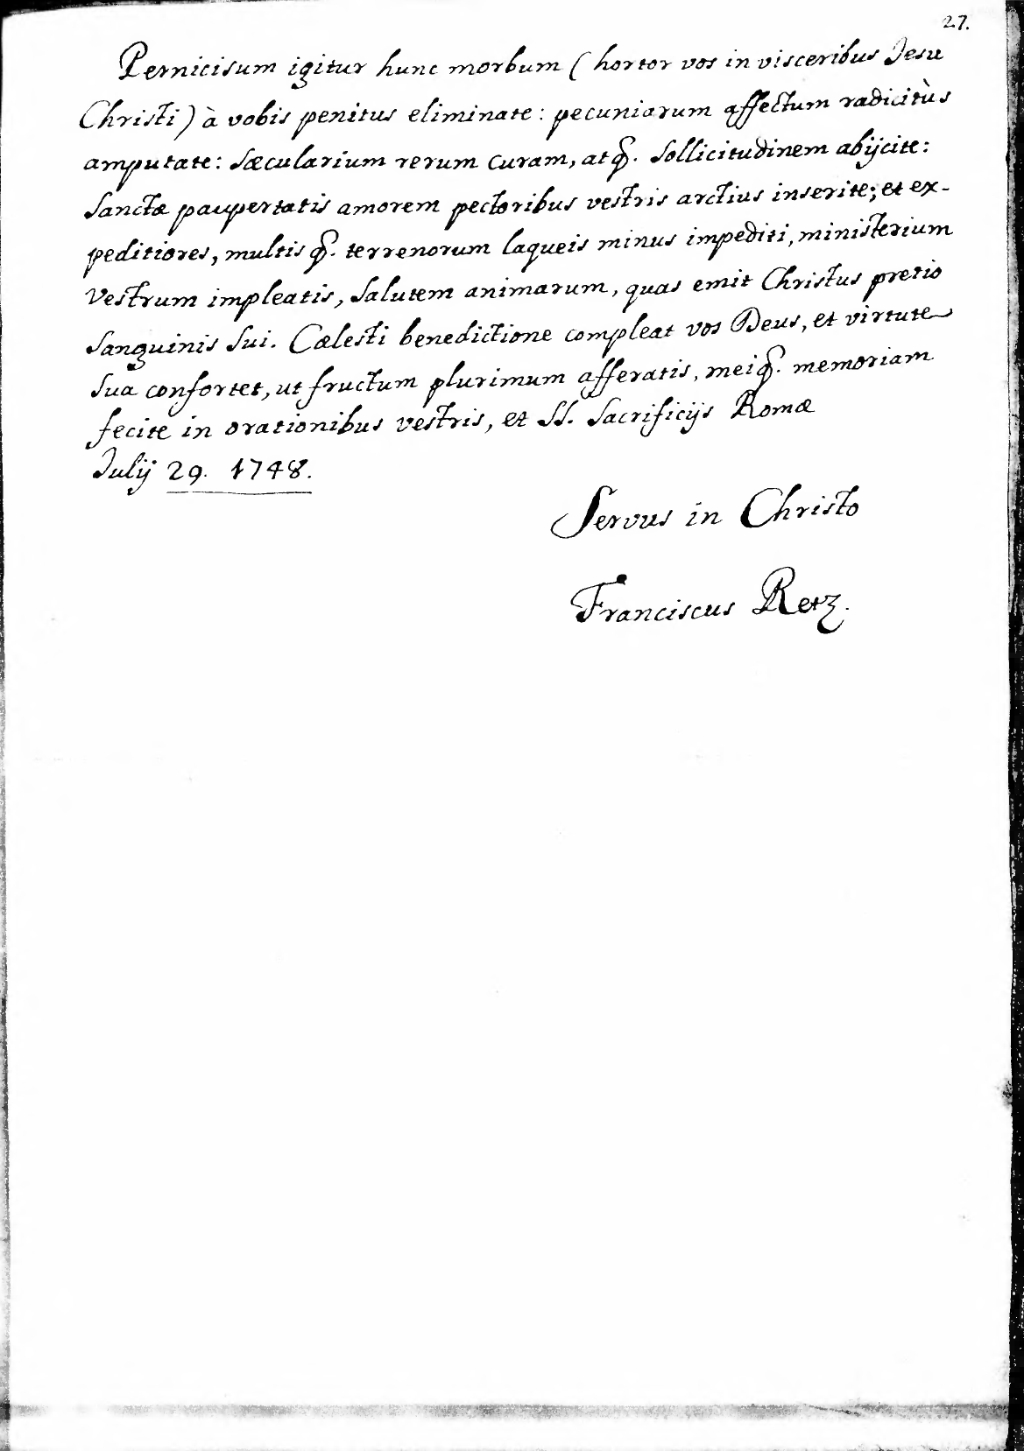 27.
Pernicisum igitur hunc morbum (hortor vos in visceribus Jesu
Christi) à vobis penitus eliminate: pecuniarum affectum radicitùs
amputate: sæcularium rerum curam, atq. sollicitudinem abijcite:
sanctæ paupertatis amorem pectoribus vestris arctius inserite; et ex-
peditiores, multisq. terrenorum laqueis minus impediti, ministerium
vestrum impleatis, salutem animarum, quas emit Christus pretio
sanguinis sui. Cælesti benedictione compleat vos Deus, et virtute
sua confortet, ut fructum plurimum afferatis, meiq. memoriam
fecite in orationibus vestris, et SS. Sacrificijs Romæ
Julij 29. 1748.
Servus in Christo
Franciscus Retz.